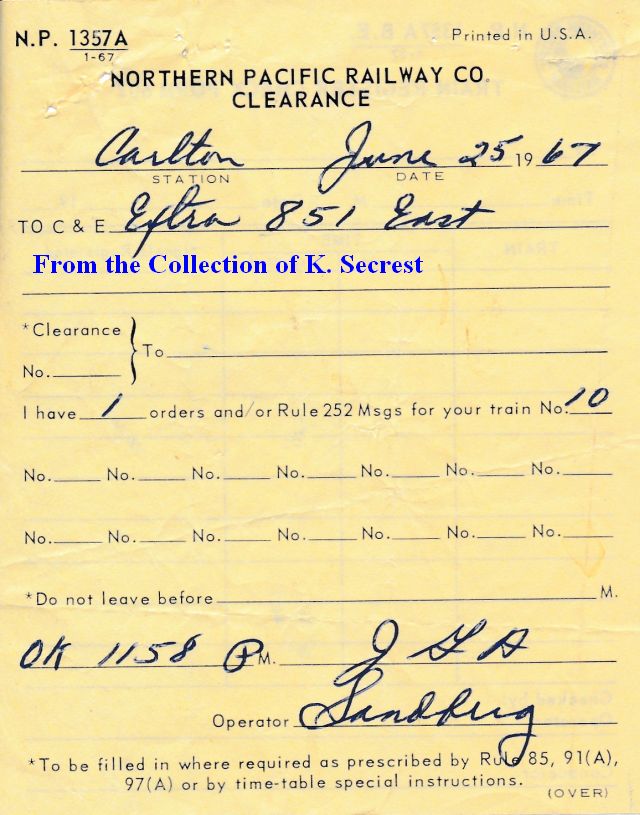 N.P. 1357A Printed in U.S.A.
1-67
NORTHERN PACIFIC RAILWAY CO.
CLEARANCE
Carlton June 25 1967
STATION DATE
TO C & E Extra 851 East
From the Collection of K. Secrest
*Clearance
No. To
I have 1 orders and/or Rule 252 Msgs for your train No. 10
No. No. No. No. No. No. No.
No. No. No. No. No. No. No.
*Do not leave before M.
OK 1158 P M. J G A
Operator Sandberg
*To be filled in where required as prescribed by Rule 85, 91(A),
97(A) or by time-table special instructions.
(OVER)